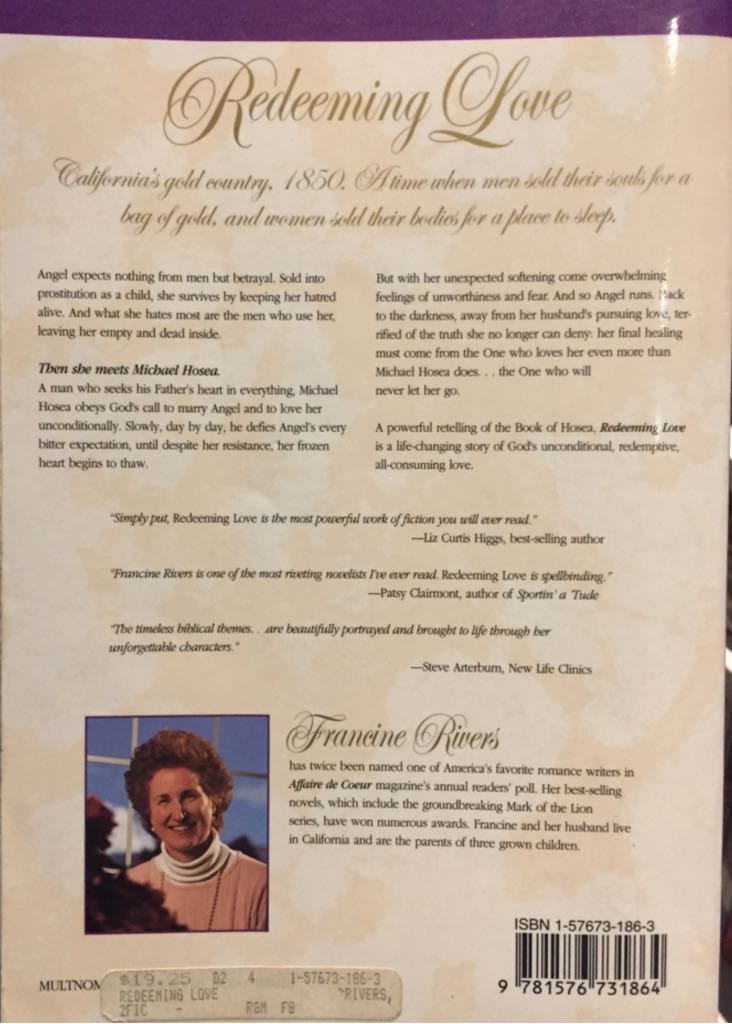 Redeeming Love
California's gold country, 1850. A time when men sold their souls for a
bag of gold, and women sold their bodies for a place to sleep.
Angel expects nothing from men but betrayal. Sold into
prostitution as a child, she survives by keeping her hatred
alive. And what she hates most are the men who use her,
leaving her empty and dead inside.
Then she meets Michael Hosea.
A man who seeks his Father's heart in everything, Michael
Hosea obeys God's call to marry Angel and to love her
unconditionally. Slowly, day by day, he defies Angel's every
bitter expectation, until despite her resistance, her frozen
heart begins to thaw.
But with her unexpected softening come overwhelming
feelings of unworthiness and fear. And so Angel runs. Back
to the darkness, away from her husband's pursuing love, ter-
rified of the truth she no longer can deny: her final healing
must come from the One who loves her even more than
Michael Hosea does. . . the One who will
never let her go.
A powerful retelling of the Book of Hosea, Redeeming Love
is a life-changing story of God's unconditional, redemptive,
all-consuming love.
"Simply put, Redeeming Love is the most powerful work of fiction you will ever read."
—Liz Curtis Higgs, best-selling author
"Francine Rivers is one of the most riveting novelists I've ever read. Redeeming Love is spellbinding."
—Patsy Clairmont, author of Sportin' a 'Tude
"The timeless biblical themes. . .are beautifully portrayed and brought to life through her
unforgettable characters."
—Steve Arterburn, New Life Clinics
Francine Rivers
has twice been named one of America's favorite romance writers in
Affaire de Coeur magazine's annual readers' poll. Her best-selling
novels, which include the groundbreaking Mark of the Lion
series, have won numerous awards. Francine and her husband live
in California and are the parents of three grown children.
ISBN 1-57673-186-3
9 781576 731864
MULTNOM
$19.25 D2 4 1-57673-186-3
REDEEMING LOVE ^RIVERS,
2FIC - RGM FB